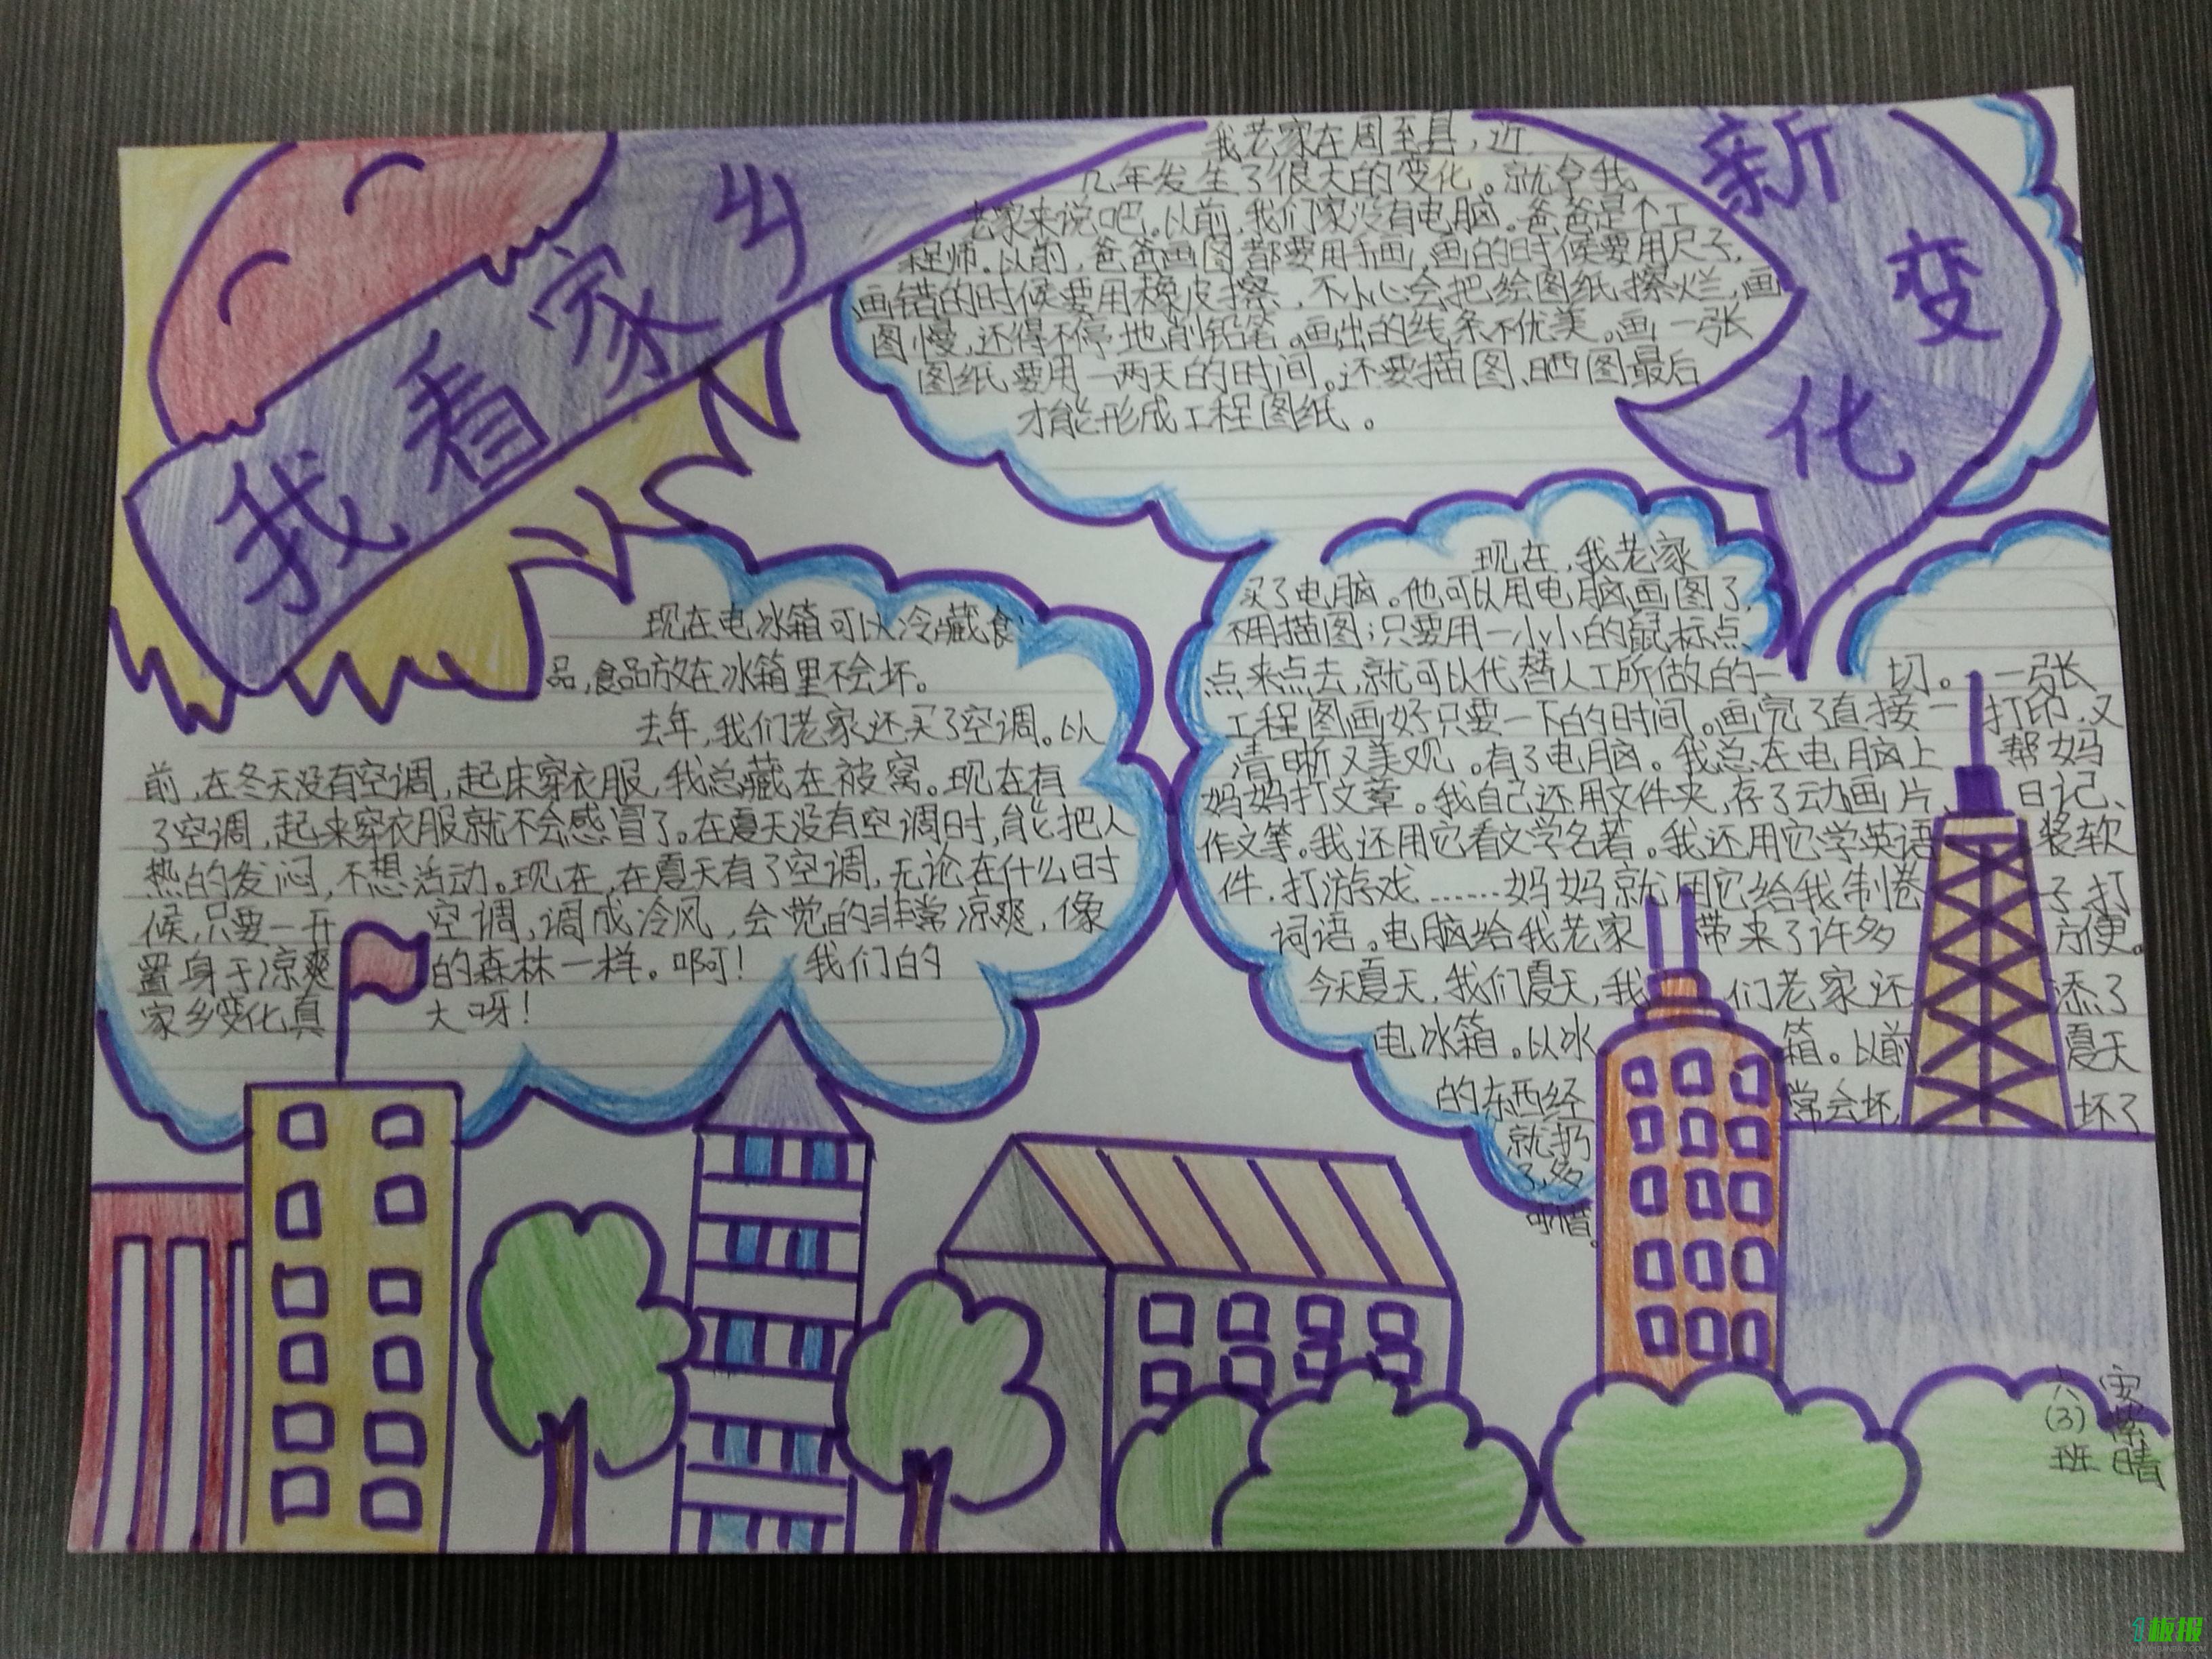 我看家乡
新变化
我老家在周至县，近
几年发生了很大的变化。就拿我
老家来说吧。以前，我们家没有电脑。爸爸是个工
程师。以前，爸爸画图都要用手画，画的时候要用尺子，
画错的时候要用橡皮擦，不小心会把绘图纸擦烂，画
图慢，还得不停地削铅笔。画出的线条不优美。画一张
图纸要用一两天的时间。还要描图、晒图最后
才能形成工程图纸。
现在，我老家
买了电脑。他可以用电脑画图了，
不用描图；只要用一小小的鼠标点
点来点去，就可以代替人工所做的一切。一张
工程图画好只要一下的时间。画完了直接一打印，又
清晰又美观。有了电脑。我总在电脑上帮妈
妈妈打文章。我自己还用文件夹，存了动画片、日记、
作文等。我还用它看文学名著。我还用它学英语装软
件，打游戏……妈妈就用它给我制卷子，打
词语。电脑给我老家带来了许多方便。
今天夏天，我们夏天，我们老家还添了
电冰箱。以冰箱。以前夏天
的东西经常会坏，坏了
就扔
了，多
可惜。
现在电冰箱可以冷藏食
品，食品放在冰箱里不会坏。
去年，我们老家还买了空调。以
前，在冬天没有空调，起床穿衣服，我总藏在被窝。现在有
了空调，起来穿衣服就不会感冒了。在夏天没有空调时，能把人
热的发闷，不想活动。现在，在夏天有了空调，无论在什么时
候，只要一开空调，调成冷风，会觉的非常凉爽，像
置身于凉爽的森林一样。啊！我们的
家乡变化真大呀！
六(3)班
1板报